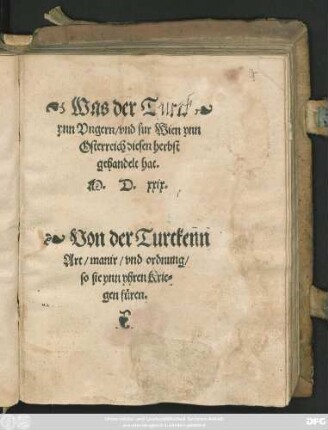 Was der Turck
ynn Vngern/vnd fur Wien ynn
Osterreich diesen herbst
gehandelt hat.
M. D. xxix.
Von der Turckenn
Art/manir/vnd ordnung/
so sie ynn yhren Krie-
gen füren.
DFG